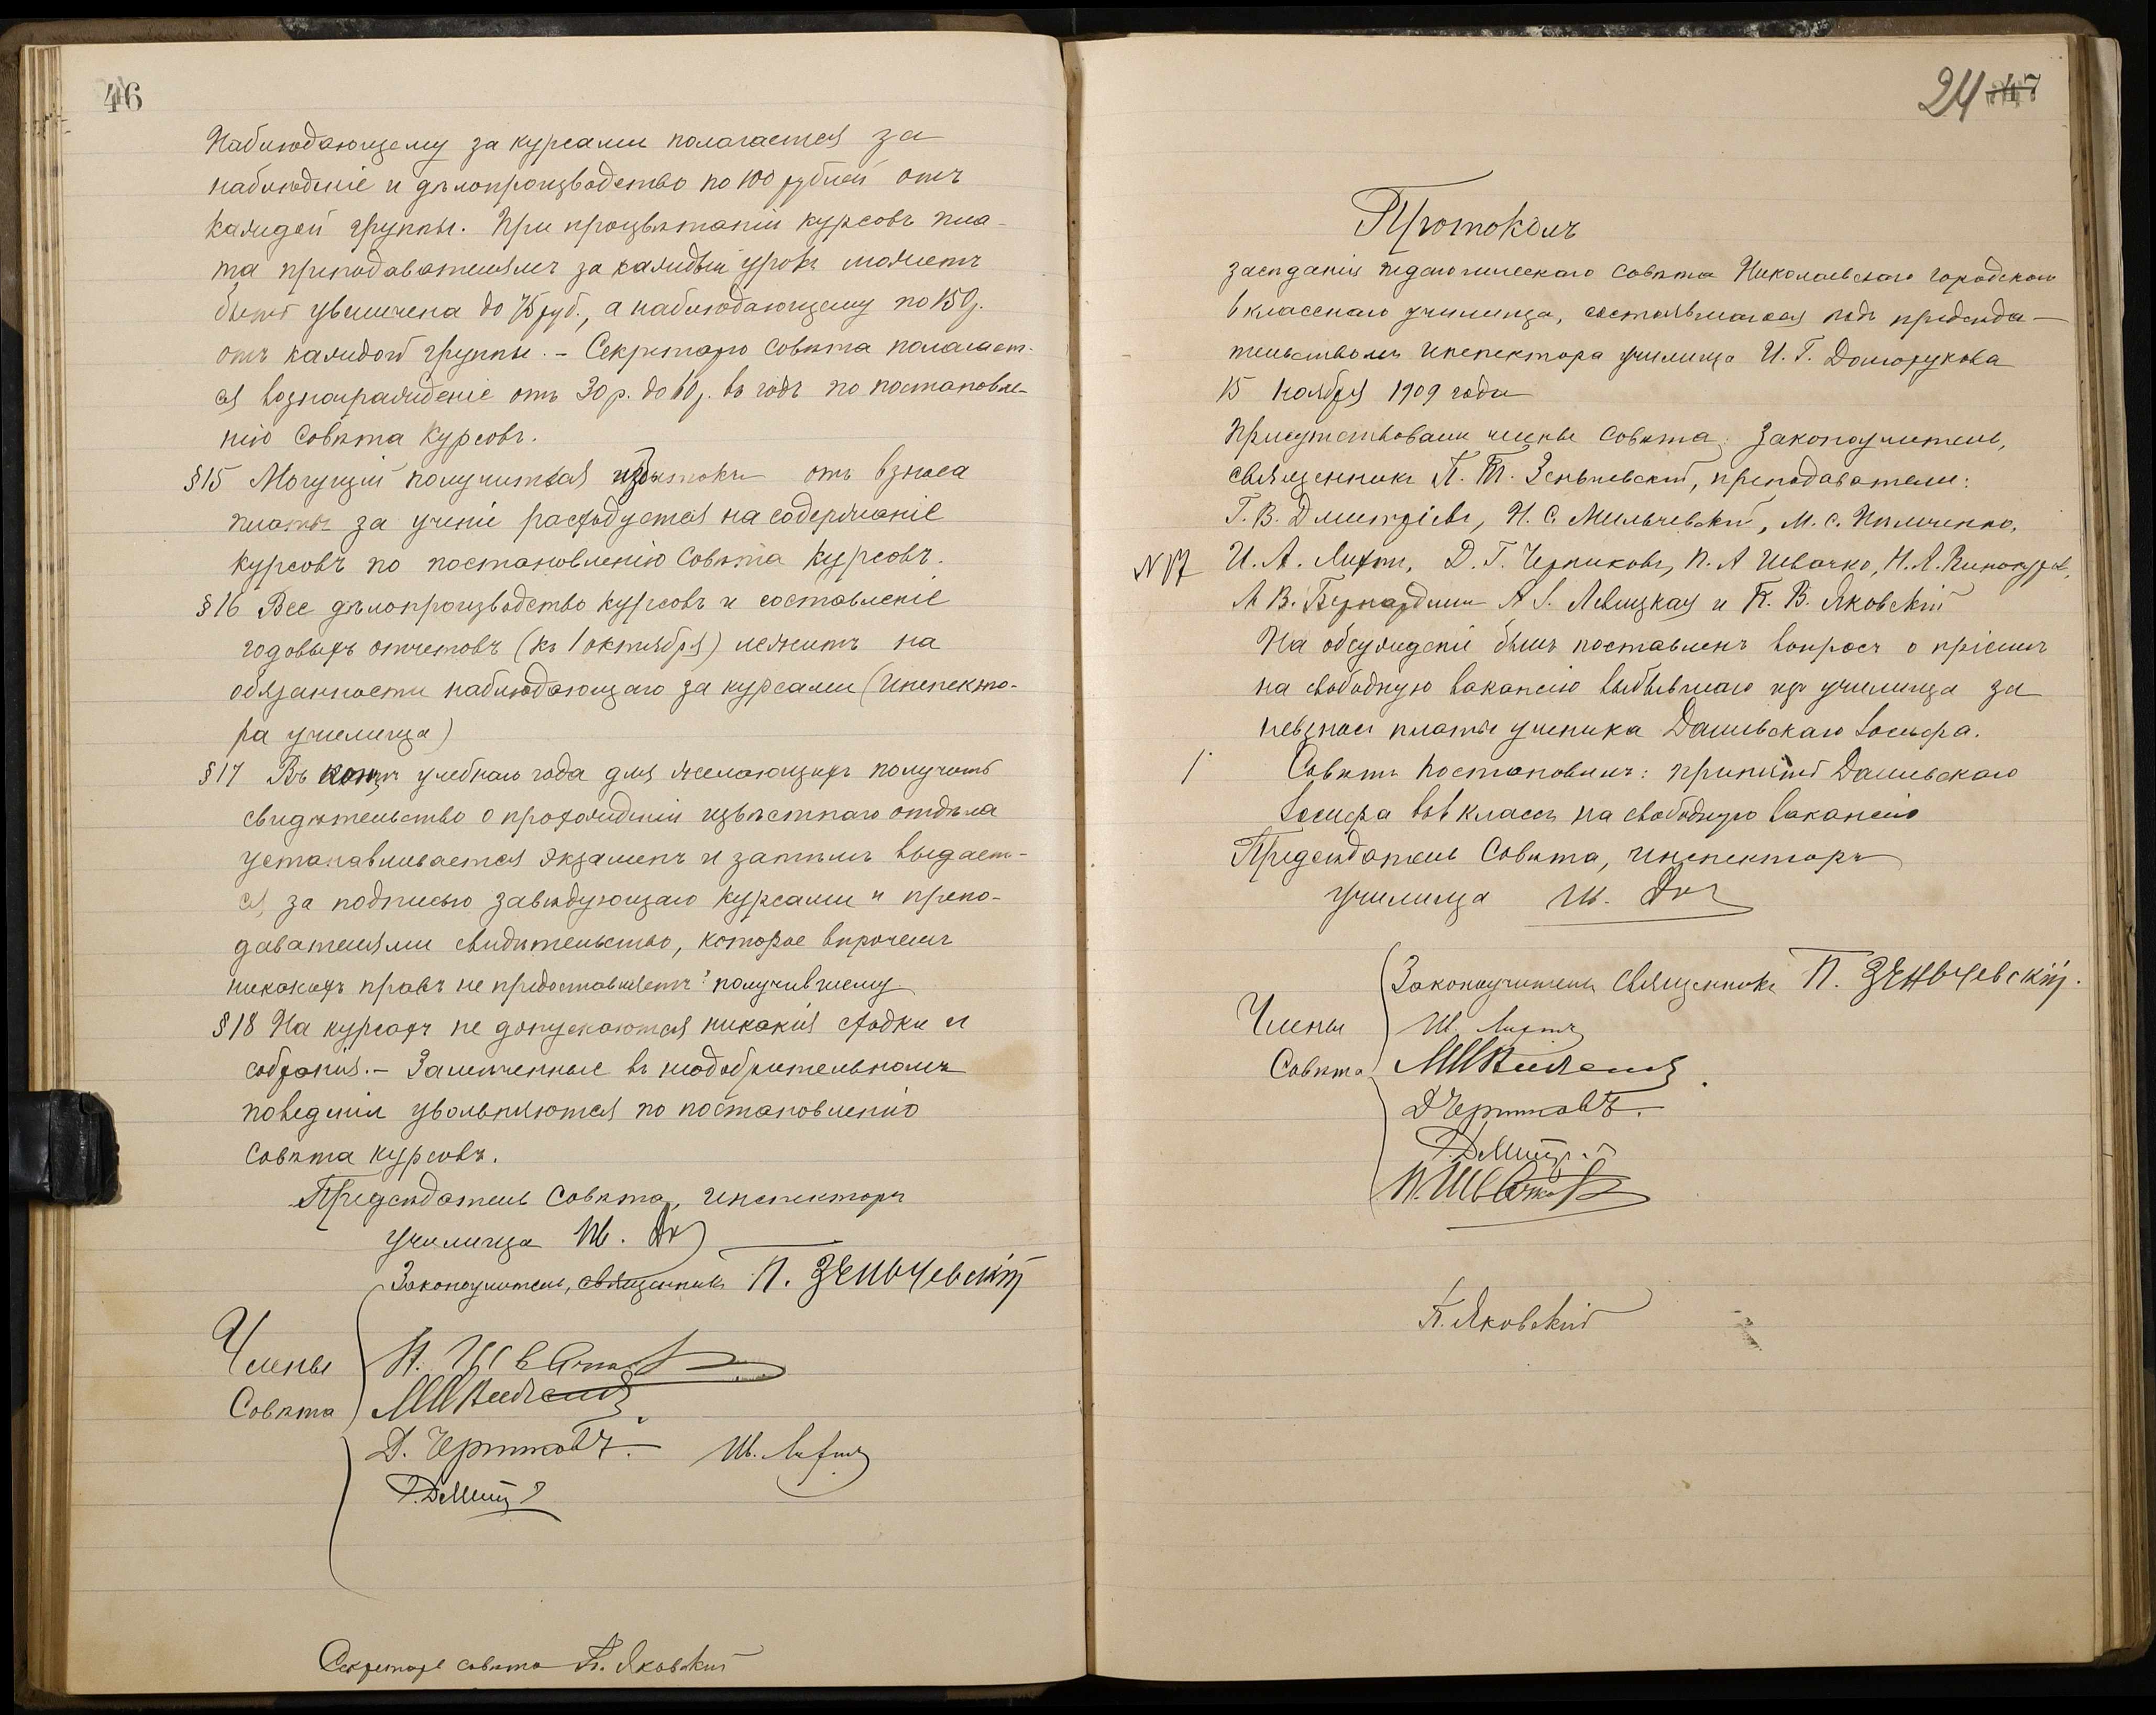 46
Наблюдающему за курсами полагается за
наблюденіе и дѣлопроизводство по 100 рублей отъ
каждой группы. При процвѣтаніи курсовъ пла-
та преподавателямъ за каждый урокъ можетъ
быть увеличена до 75 руб., а наблюдающему по 150 р.
отъ каждой группы. – Секретарю Совѣта полагает-
ся вознагражденіе отъ 30 р. до 60 р. въ годъ по постановле-
нію Совѣта Курсовъ.
§15 Могущій получиться избытокъ отъ взноса
платы за ученіе расходуется на содержаніе
курсовъ по постановленію Совѣта Курсовъ.
§16 Все дѣлопроизводство курсовъ и составленіе
годовыхъ отчетовъ (къ 1 октября) лежитъ на
обязанности наблюдающаго за курсами (Инспекто-
ра училища)
§17 Въ концѣ учебнаго года для желающихъ получить
свидѣтельство о прохожденіи извѣстнаго отдѣла
устанавливается экзаменъ и затѣмъ выдает-
ся, за подписью завѣдующаго курсами и препо-
давателями свидѣтельство, которое впрочемъ
никакихъ правъ не предоставляетъ получившему
§18 На курсахъ не допускаются никакія сходки и
собранія. – Замѣченные въ неодобрительномъ
поведеніи увольняются по постановленію
Совѣта курсовъ.
Предсѣдатель Совѣта, инспекторъ
училища
Законоучитель, священникъ П. Зеньчевскій
Члены П. Швачко
Совѣта
Д. Чериковъ. И. Лихтъ
Г. Дмит
Секретарь совѣта П. Яковскій
24 47
Протоколъ
засѣданія педагогическаго Совѣта Николаевскаго городского
6 класснаго училища, состоявшагося подъ предсѣда-
тельствомъ инспектора училища И. Г. Долгорукова
15 ноября 1909 года
Присутствовали члены Совѣта: Законоучитель,
священникъ П. Т. Зеньчевскій, преподаватели:
Г. В. Дмитріевъ, Н. С. Мильчевскій, М. С.
N 17 И. А. Лихтъ, Д. Г. Чериковъ, П. А Швачко, Н. А. Винокуровъ,
А В. Бернардъ А. Левицкая и П. В. Яковскій
На обсужденіе былъ поставленъ вопросъ о пріемѣ
на свободную вакансію выбывшаго изъ училища за
невзносъ платы ученика Дашевскаго Іосифа.
1 Совѣтъ постановилъ: принять Дашевскаго
Іосифа въ классъ на свободную вакансію
Предсѣдатель Совѣта, инспекторъ
училища
Законоучитель священникъ П. Зеньчевскій.
Члены И. Лихтъ
Совѣта
Д Чериковъ.
Г. Дмитр
П. Швачко
П. Яковскій